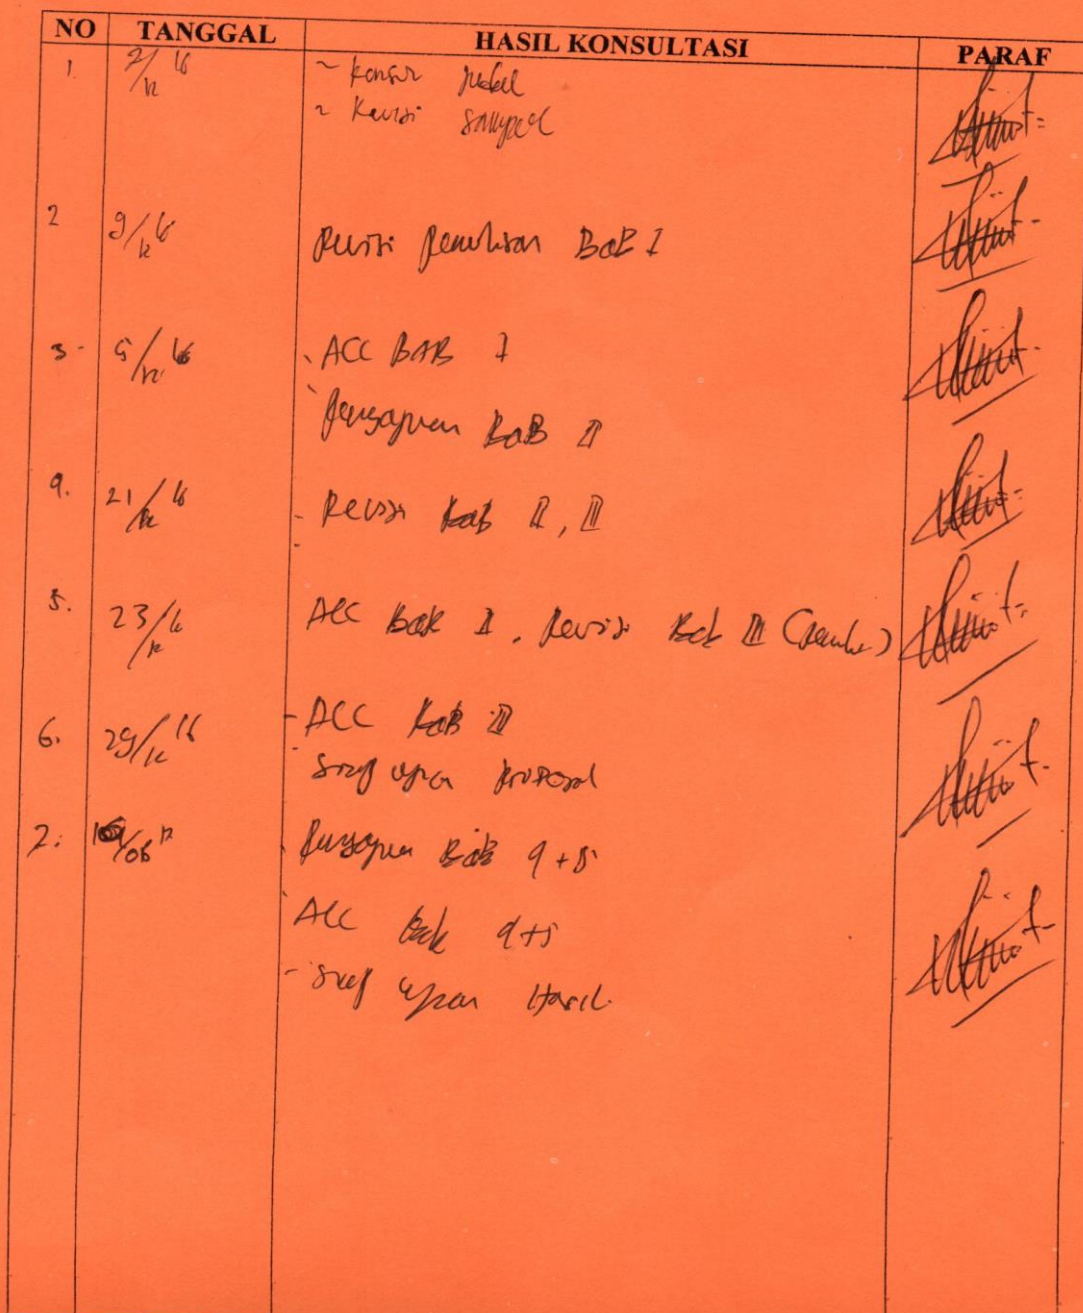 NO TANGGAL HASIL KONSULTASI PARAF
1. 2/12 16 ~ Konsul judul
~ Revisi
2 9/12 16 Revisi Penulisan BAB I
3- ACC BAB I
Pengajuan BAB II
4. 21/12 16 - Revisi BAB II, III
5. 23/12 16 ACC BAB II, Revisi Bab III
6. 29/12 16 - ACC BAB III
- Siap ujian proposal
7. Pengajuan Bab 4+5
ACC Bab 4+5
- Siap ujian Hasil.